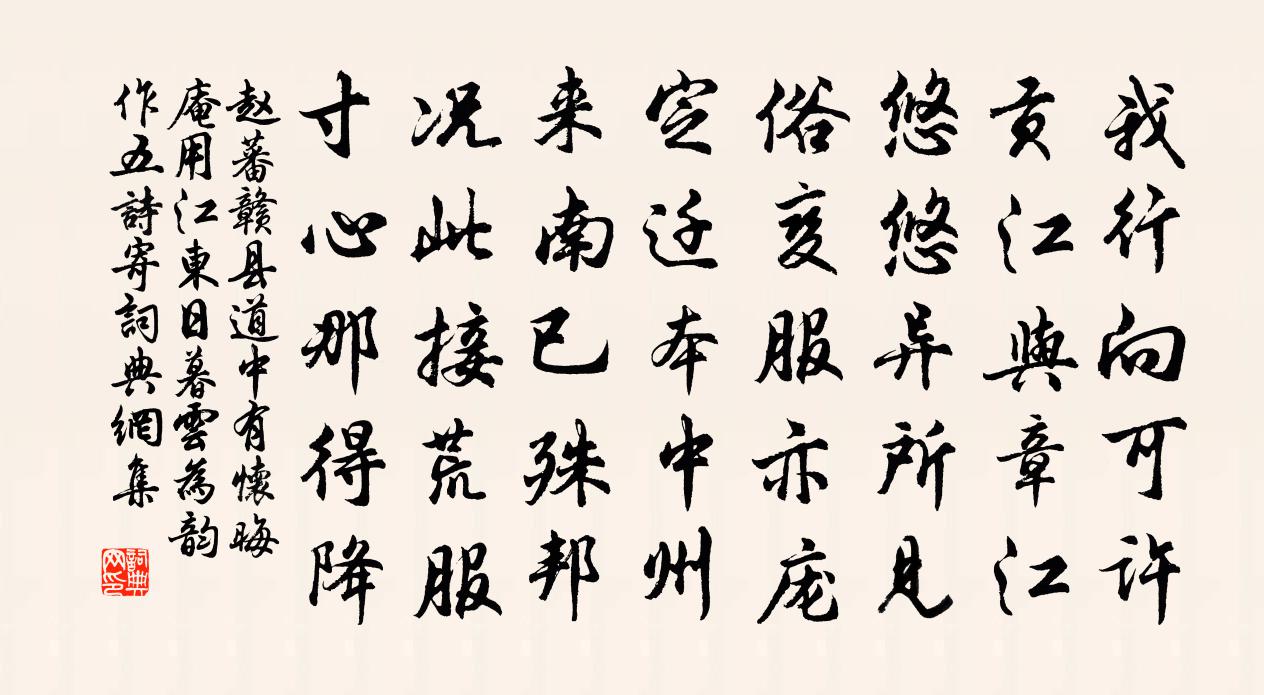 我行向可许
贡江與章江
悠悠异所见
俗变服亦庞
定迁本中州
来南已殊邦
况此接荒服
寸心那得降
赵蕃赣县道中有懷晦
庵用江東日暮雲為韵
作五詩寄詞典網集
詞典
网印